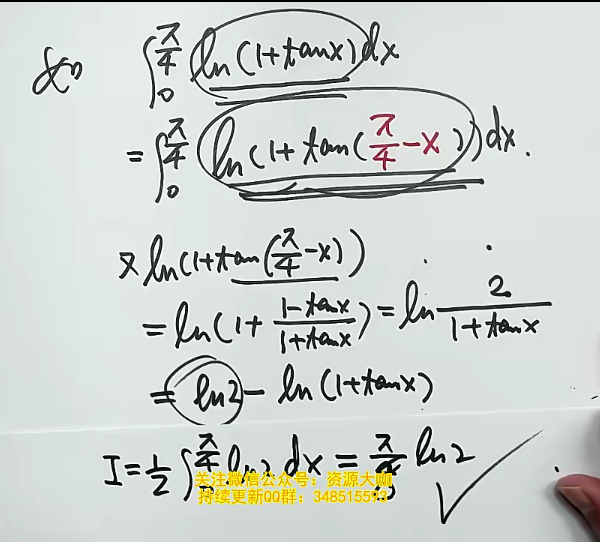 如 ∫₀^(π/4) ln(1+tanx)dx
= ∫₀^(π/4) ln(1+tan(π/4-x))dx.
又 ln(1+tan(π/4-x))
= ln(1+ (1-tanx)/(1+tanx)) = ln 2/(1+tanx)
= ln2 - ln(1+tanx)
I = 1/2 ∫₀^(π/4) ln2 dx = π/8 ln2 ✓
关注微信公众号：资源大咖
持续更新QQ群：348515593